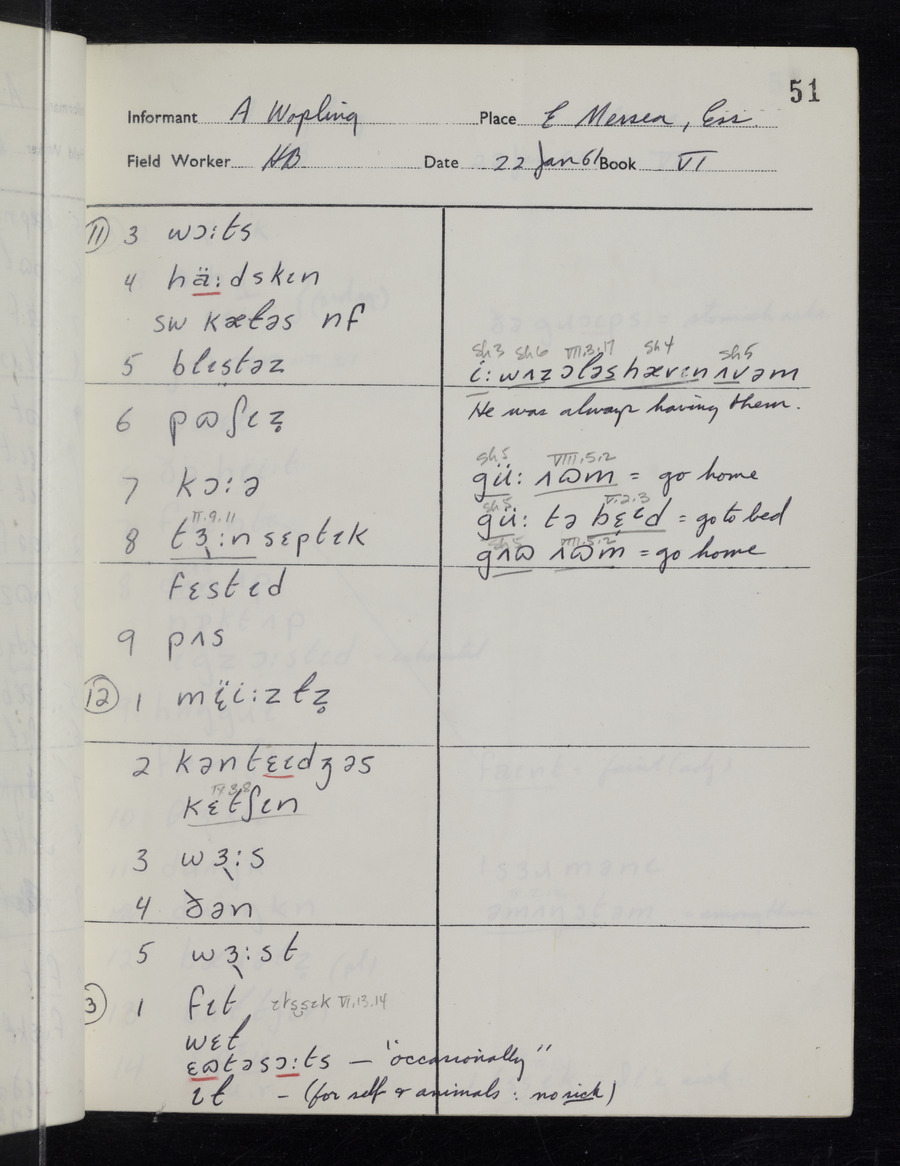 51
Informant A Wopling Place E Mersea, Ess
Field Worker HB Date 22 Jan 61 Book VI
11 3 wɔ:ts
4 hä:dskɩn
sw kætəs nf
5 blɩstəz
sh3 sh6 VII.3.17 sh4 sh5
i:wʌzɔləshævɩnʌvəm
He was always having them.
6 pɷʃɩz̥
7 kɔ:ə
sh5 VIII.5.2
gü: ʌɷm = go home
sh5 V.2.3
gü: tə bɛɩd = go to bed
II.9.11
8 tɜ:n sɛptɩk
sh5 VIII.5.2
gʌɷ ʌɷm = go home
fɛstɩd
9 pʌs
12 1 mɛ̈i:zɫz̥
2 kəntɛɩdʒəs
IV.3.8
kɛtʃɩn
3 wɜ:s
4 ðən
5 wɜ:st
3 1 fɩt ɩtssɩk VI.13.14
wɛt
ɛɷtəsɔ:ts — "occasionally"
ɩt - (for self & animals : no sick)